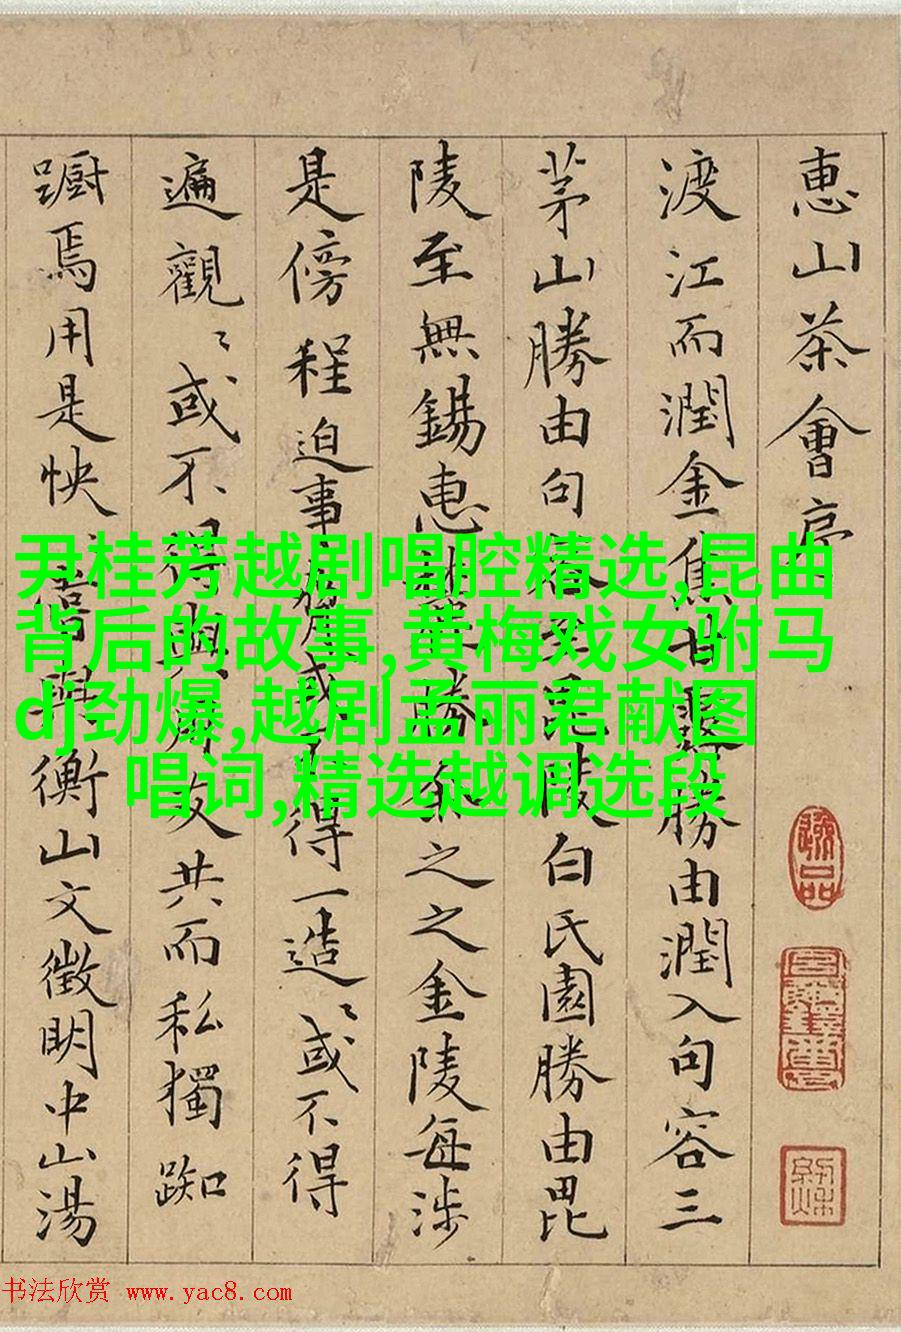 惠山茶會序
渡江而潤金焦甘露勝由潤入句容三
茅山勝由句容至毘陵白氏園勝由毘
陵至無錫惠山勝余之之金陵每涉
是傍程迫事或不得一造〻或不得
遍觀〻或不得與友共而私獨踟
蹰焉用是怏與衡山文徵明中山湯
尹桂芳越剧唱腔精选,昆曲
背后的故事,黄梅戏女驸马
dj劲爆,越剧孟丽君献图
唱词,精选越调选段
逸品
书法欣赏 www.yac8.com